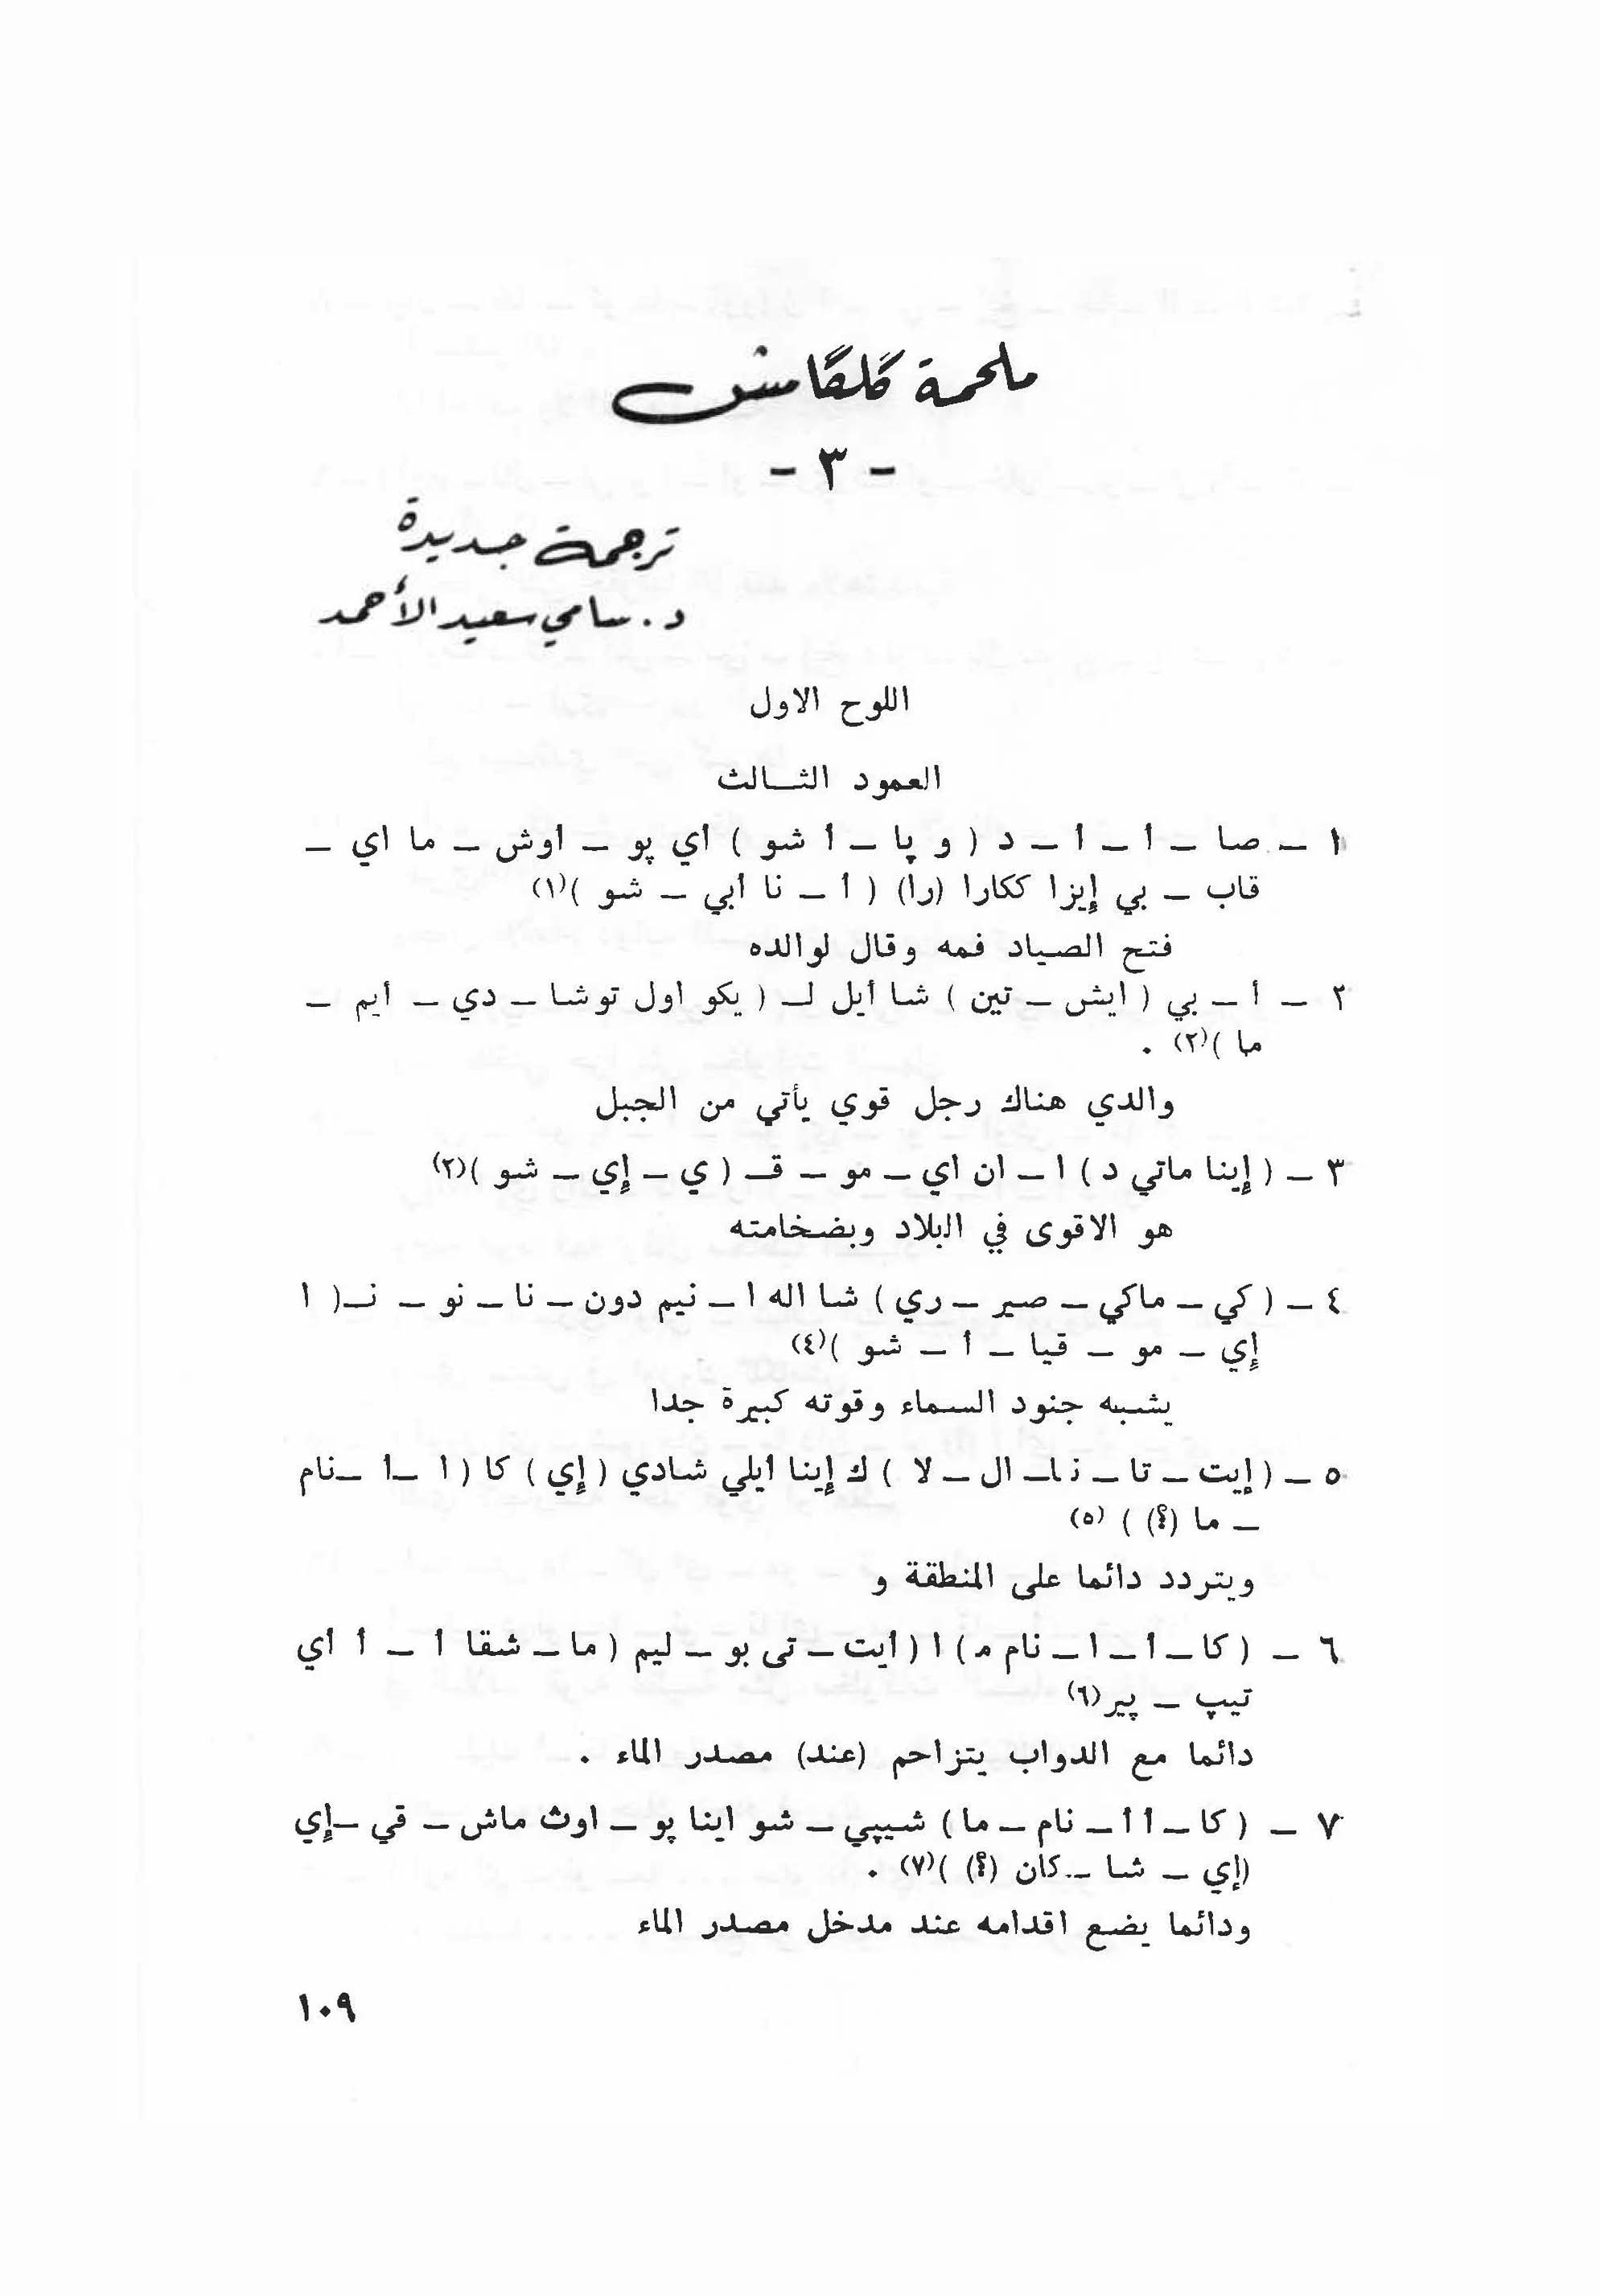 ملحمة گلگامش
- ٣ -
ترجمة جديدة
د. سامي سعيد الأحمد
اللوح الاول
العمود الثالث
١ – صا – أ – أ – د ( و پا – أ شو ) أي پو – أوش – ما اي –
قاب – بي إيزا ككارا (را) ( أ – نا أبي – شو )(١)
فتح الصياد فمه وقال لوالده
٢ – أ – بي ( ايش – تين ) شا أيل لـ ( يكو أول توشا – دي – أيم –
ما )(٢) .
والدي هناك رجل قوي يأتي من الجبل
٣ – ( إينا ماتي د ) ا – ان اي – مو – قـ ( ي – إي – شو )(٢)
هو الاقوى في البلاد وبضخامته
٤ – ( كي – ماكي – صير – ري ) شا اله ا – نيم دون – نا – نو – نـ( ا
إي – مو – قيا – أ – شو )(٤)
يشبه جنود السماء وقوته كبيرة جدا
٥ – ( إيت – تا – نا – ال – لا ) ك إينا أيلي شادي ( إي ) كا ( ا – أ – نام
– ما (؟) ) (٥)
ويتردد دائما على المنطقة و
٦ – ( كا – أ – ا – نام م ) ا ( أيت – تى بو – ليم ( ما – شقا أ – أ أي
تيپ – پير(٦)
دائما مع الدواب يتزاحم (عند) مصدر الماء .
٧ – ( كا – أ أ – نام – ما ) شيپي – شو اينا پو – اوث ماش – قي – إي
(إي – شا – كان (؟) )(٧) .
ودائما يضع اقدامه عند مدخل مصدر الماء
١٠٩